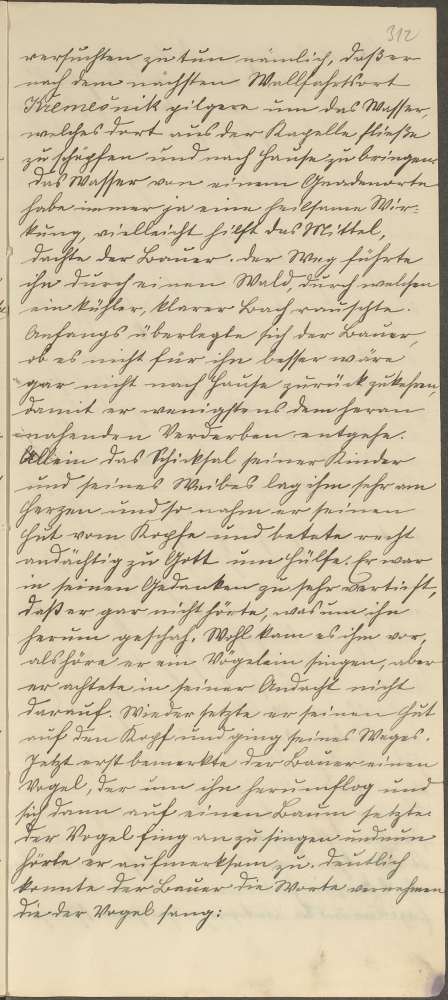 312
versuchten zu tun nämlich, daß er
nach dem nächsten Wallfahrtsort
Křemešnik pilgere um das Wasser,
welches dort aus der Kapelle fließe
zu schöpfen und nach Hause zu bringen.
Das Wasser von einem Gnadenorte
habe immer ja eine heilsame Wir-
kung, vielleicht hilft das Mittel,
dachte der Bauer. Der Weg führte
ihn durch einen Wald, durch welchen
ein kühler, klarer Bach rauschte.
Anfangs überlegte sich der Bauer,
ob es nicht für ihn besser wäre
gar nicht nach Hause zurückzukehren,
damit er wenigstens dem heran
nahenden Verderben entgehe.
Allein das Schicksal seiner Kinder
und seines Weibes lag ihm sehr am
Herzen und so nahm er seinen
Hut vom Kopfe und betete recht
andächtig zu Gott um Hülfe. Er war
in seinen Gedanken zu sehr vertieft,
daß er gar nicht hörte, was um ihn
herum geschah. Wohl kam es ihm vor,
als höre er ein Vögelein singen, aber
er achtete in seiner Andacht nicht
darauf. Wieder setzte er seinen Hut
auf den Kopf und ging seines Weges.
Jetzt erst bemerkte der Bauer einen
Vogel, der um ihn herumflog und
sich dann auf einen Baum setzte.
Der Vogel fing an zu singen und nun
hörte er aufmerksam zu. Deutlich
konnte der Bauer die Worte vernehmen
die der Vogel sang: